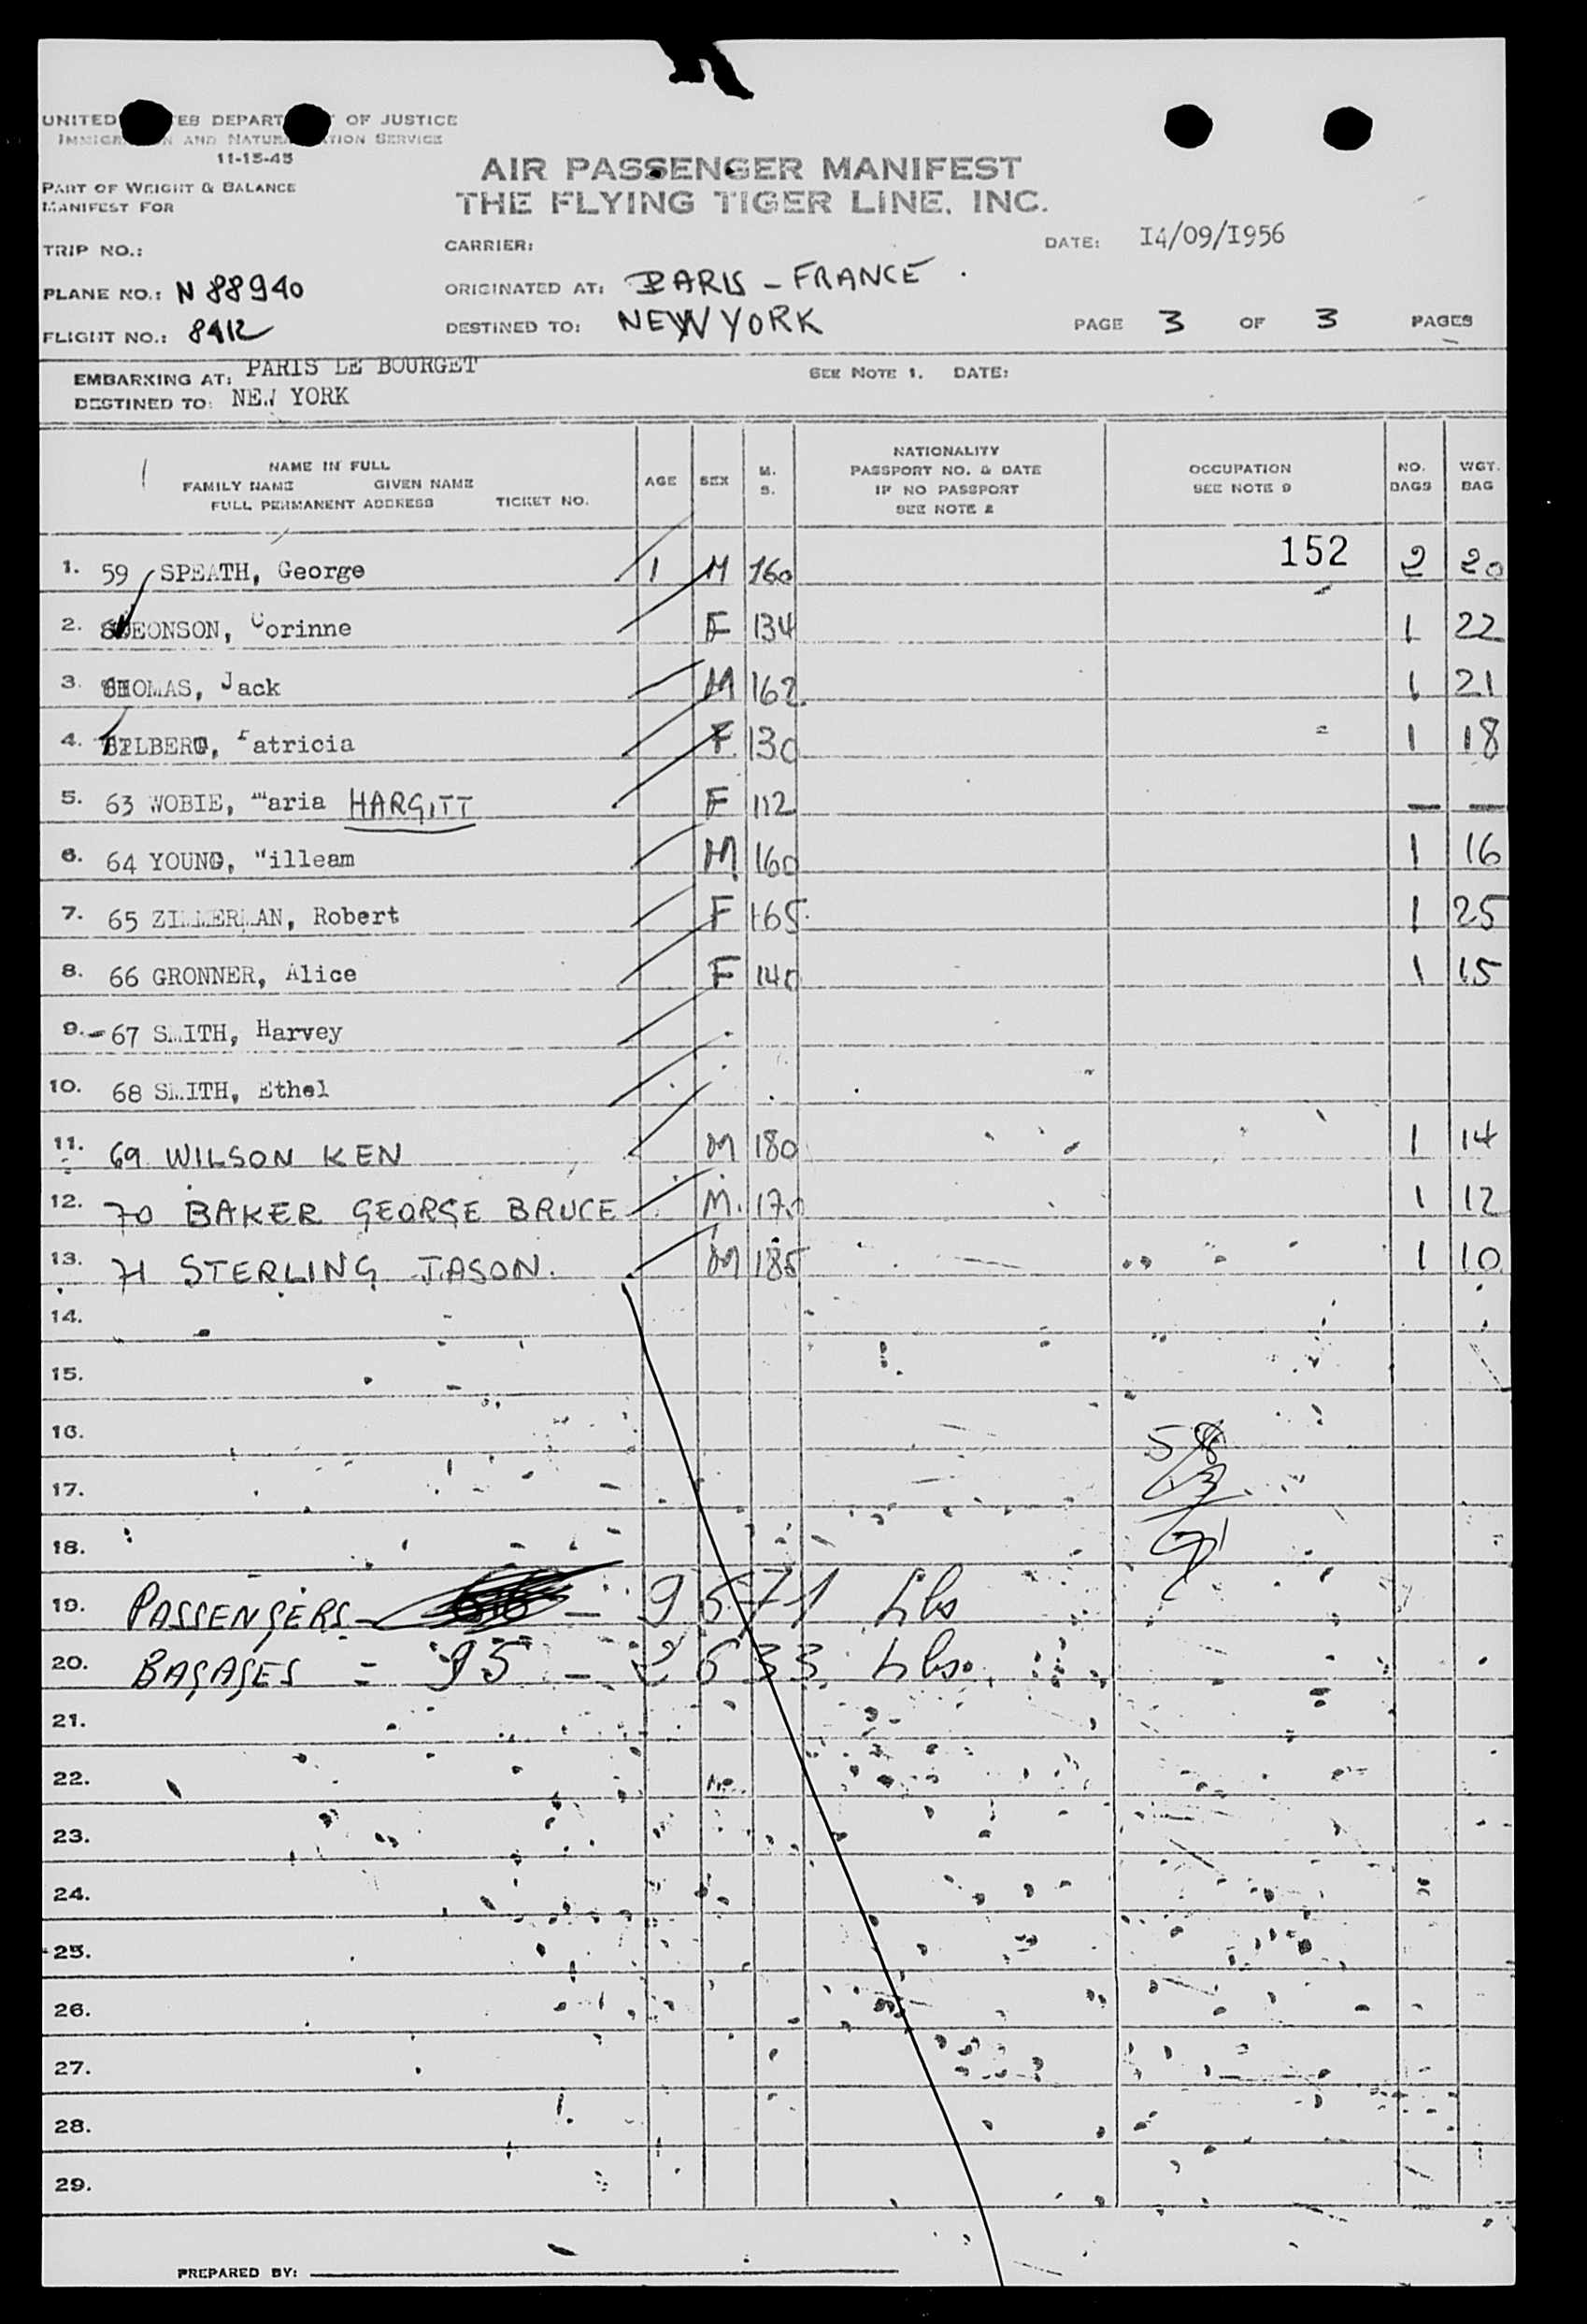 UNITED STATES DEPARTMENT OF JUSTICE
IMMIGRATION AND NATURALIZATION SERVICE
11-15-45
PART OF WEIGHT & BALANCE
MANIFEST FOR
AIR PASSENGER MANIFEST
THE FLYING TIGER LINE, INC.
TRIP NO.: CARRIER: DATE: I4/09/I956
PLANE NO.: N 88940 ORIGINATED AT: PARIS - FRANCE.
FLIGHT NO.: 8412 DESTINED TO: NEW YORK PAGE 3 OF 3 PAGES
EMBARKING AT: PARIS LE BOURGET SEE NOTE 1. DATE:
DESTINED TO: NEW YORK
NAME IN FULL
FAMILY NAME GIVEN NAME
FULL PERMANENT ADDRESS TICKET NO.
AGE SEX M. S.
NATIONALITY
PASSPORT NO. & DATE
IF NO PASSPORT
SEE NOTE 2
OCCUPATION
SEE NOTE 9
NO. BAGS
WGT. BAG
1. 59 SPEATH, George 1 M 160 152 2 20
2. EONSON, Corinne F 134 1 22
3. THOMAS, Jack M 162 1 21
4. Patricia F 130 1 18
5. 63 WOBIE, maria HARGITT F 112 — —
6. 64 YOUNG, Willeam M 160 1 16
7. 65 ZIMMERMAN, Robert F 165 1 25
8. 66 GRONNER, Alice F 140 1 15
9. 67 SMITH, Harvey
10. 68 SMITH, Ethel
11. 69 WILSON KEN M 180 1 14
12. 70 BAKER GEORGE BRUCE M. 170 1 12
13. 71 STERLING JASON. M 185 1 10
14.
15.
16. 58
17. 13
18. 71
19. PASSENGERS — 9671 Lbs
20. BAGAGES = 95 — 2633 Lbs.
21.
22.
23.
24.
25.
26.
27.
28.
29.
PREPARED BY: